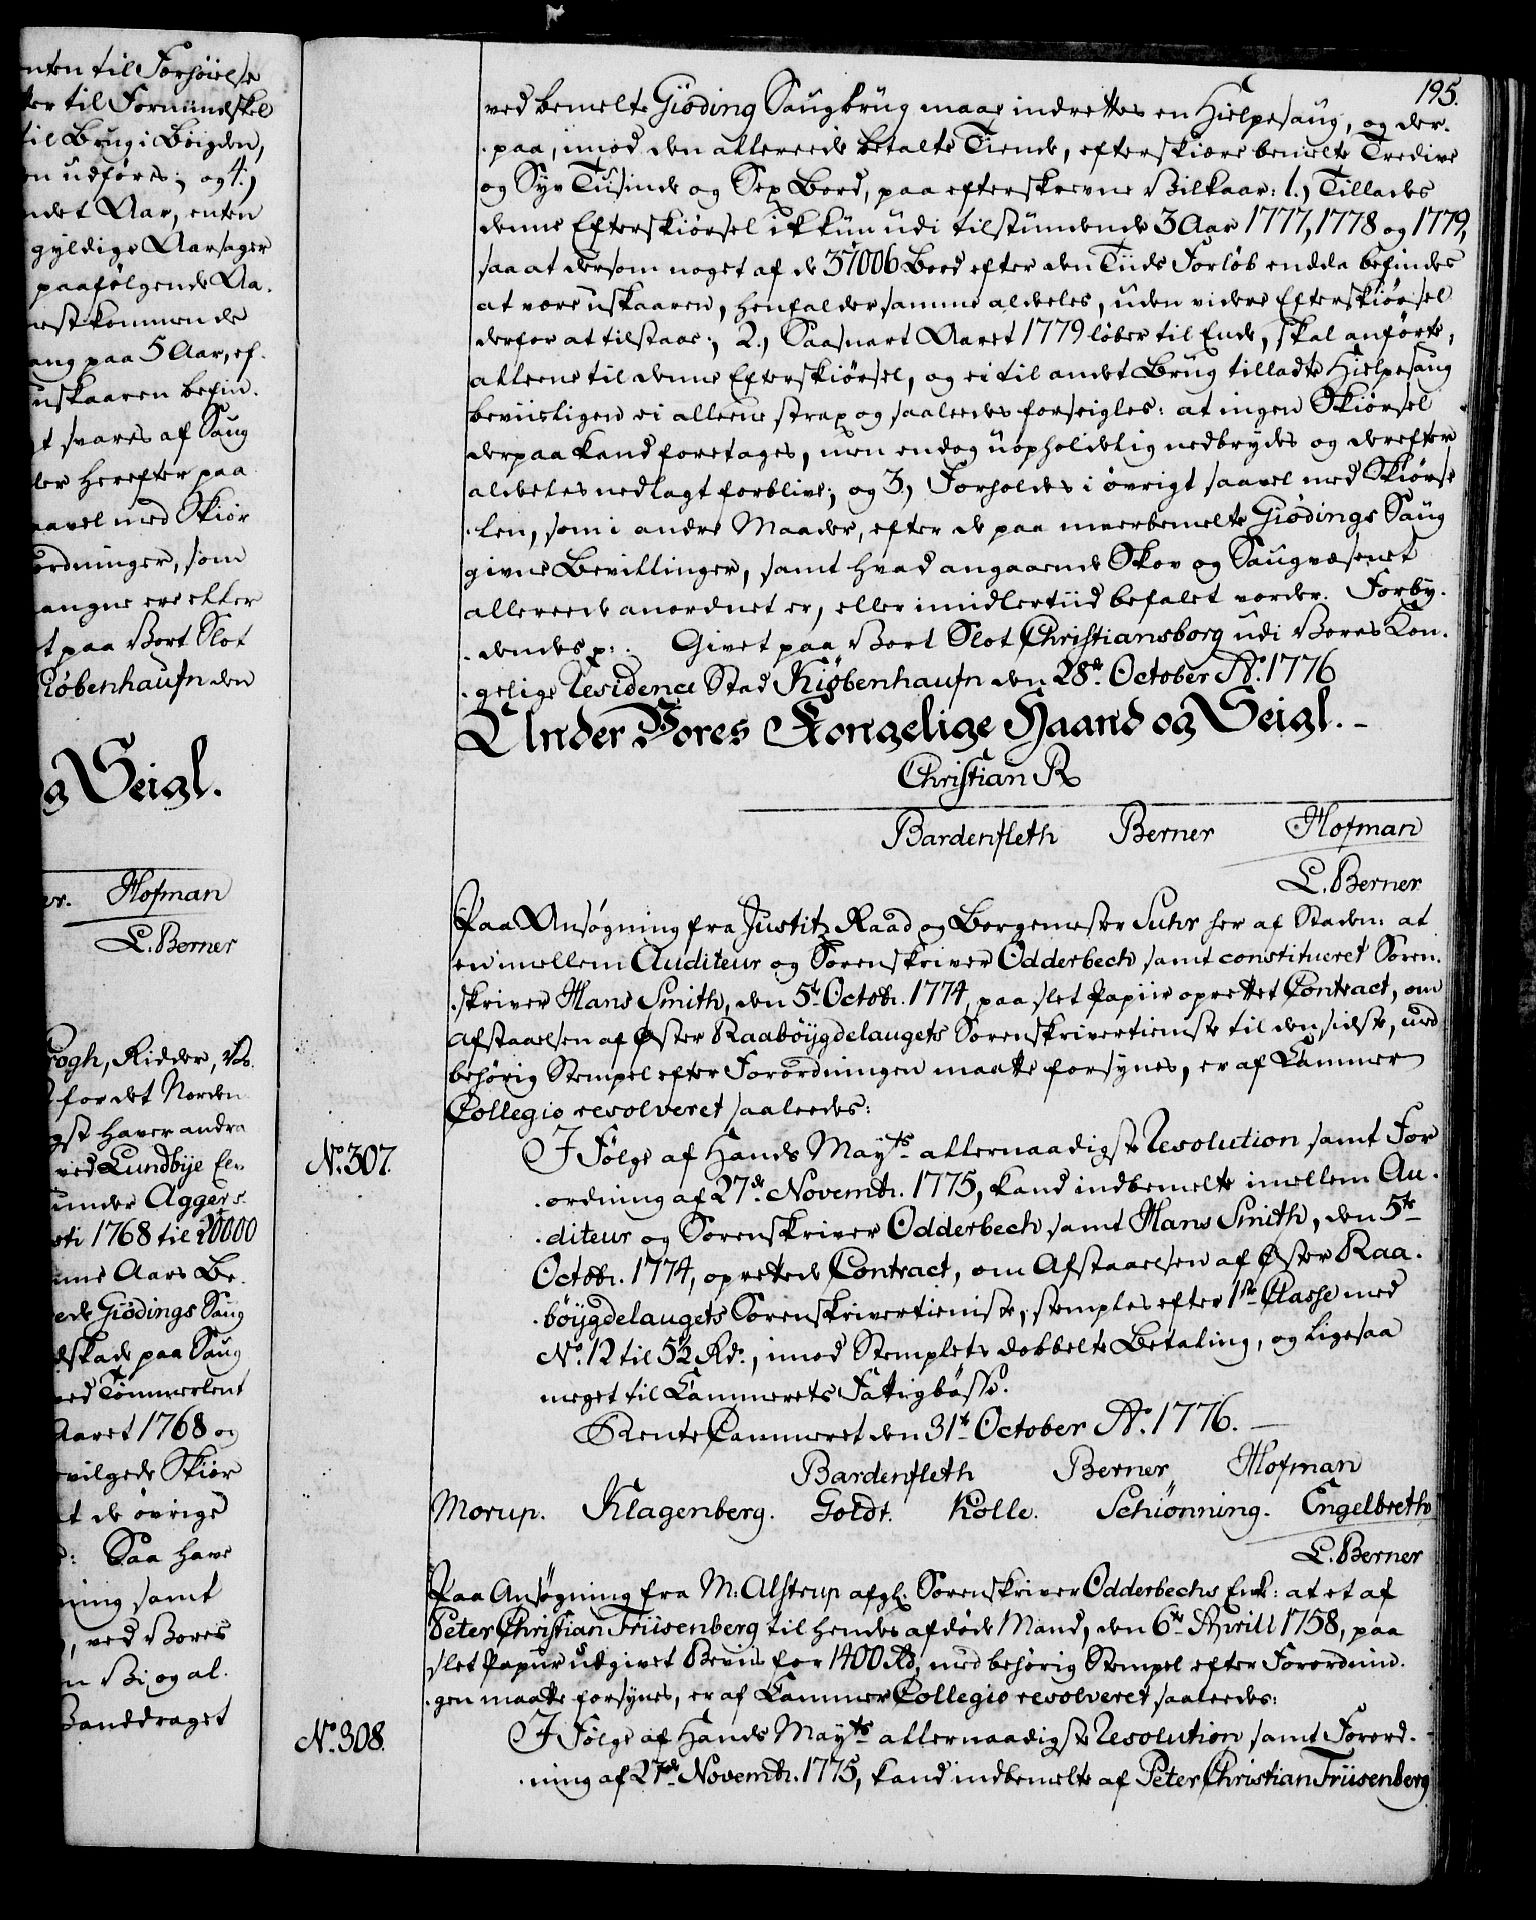 nten til Forhöielse
ter til Formindskel
til Brug i Böigden,
en udföres; og 4.,
ndet Aar, enten
gyldige Aarsager
paafølgende Aa.
nestkommende
ang paa 5 Aar, ef.
uskaaren befin.
t svares af Saug
ler herefter paa
aavel med Skiör
ordninger, som
angne ere eller
t paa Vort Slot
Kiöbenhaufn den
og Seigl.
er. Hofman
L. Berner
rogh, Ridder, Vo.
for det Norden
gst haver andra
ved Lundbÿe El.
under Aggers.
ti 1768 til 20000
nne Aars Be.
ede Giödings Saug
dskade paa Saug
ved Tömmerlent
Aaret 1768 og
evilgede Skiör
t de övrige
Saa have
ning samt
, ved Vores
n Bi og al.
Vanddraget
195.
ved bemelte Giöding Saugbrug maae indrettes en Hielpesaug, og der.
.paa, imod den allereede betalte Tiende, efterskiære bemelte Tredive
og Syv Tusinde og Sex Bord, paa efterskrevne Vilkaar: 1.) Tillades
denne Efterskiörsel ikkun udi tilstundende 3 Aar 1777, 1778 og 1779,
saa at dersom noget af de 37006 Bord efter den Tiids Forlöb endda befindes
at være uskaaren, henfalder samme aldeles, uden videre Efterskiörsel
derfor at tilstaae; 2.) Saasnart Aaret 1779 löber til Ende, skal anförte,
alleene til denne Efterskiörsel, og ei til andet Brug tilladte Hielpesaug
beviisligen ei alleene strax og saaleedes forseigles: at ingen Skiörsel
derpaa kand foretages, men endog uopholdelig nedbrydes og derefter
aldeles nedlagt forblive; og 3.) Forholdes i övrigt saavel med Skiörse
.len, som i andre Maader, efter de paa meerbemelte Giödings Saug
givne Bevillinger, samt hvad angaaende Skov og Saugvæsenet
allereede anordnet er, eller imidlertiid befalet vorder. Forby.
.dendes p: Givet paa Vort Slot Christiansborg udi Vores Kon.
.gelige Residence Stad Kiøbenhaufn den 28de October Ao. 1776
Under Vores Kongelige Haand og Seigl. –
Christian R
Bardenfleth Berner Hofman
L. Berner
Paa Ansøgning fra Justitz Raad og Borgemester Suhr her af Staden: at
en imellem Auditeur og Sorenskriver Odderbech samt constitueret Soren.
.skriver Hans Smith, den 5te Octobr. 1774, paa slet Papiir oprettet Contract, om
Afstaaelsen af Øster Raabøygdelaugets Sorenskrivertieneste til den sidste, med
behörig Stempel efter Forordningen maatte forsynes, er af Kammer
Collegio resolveret saaleedes:
No. 307.
I Fölge af Hands Mayts. allernaadigste Resolution samt For
.ordning af 27de Novembr. 1775, kand indbemelte imellem Au.
.diteur og Sorenskriver Odderbech samt Hans Smith, den 5te
Octobr. 1774, oprettede Contract, om Afstaaelsen af Øster Raa.
.böÿgdelaugets Sorenskrivertieniste, stemples efter 1ste Classe med
No. 12 til 5½ Rdr., imod Stemplets dobbelte Betaling, og ligesaa
meget til Kammerets Fattigbösse.
RenteCammeret den 31te October Ao. 1776. –
Bardenfleth Berner Hofman
Morup. Klagenberg. Goldt. Kolle. Schiønning. Engelbreth
L. Berner
Paa Ansøgning fra M: Alstrup afg. Sorenskriver Odderbechs Enke: at et af
Peter Christian Friisenberg til hendes afdöde Mand, den 6te Aprill 1758, paa
slet Papiir udgivet Beviis for 1400 Rd, med behörig Stempel efter Forordnin.
.gen maatte forsynes, er af Kammer Collegio resolveret saaledes:
No. 308.
I Fölge af Hands Mayts. allernaadigste Resolution samt Forord.
.ning af 27de Novembr. 1775, kand indbemelte af Peter Christian Friisenberg